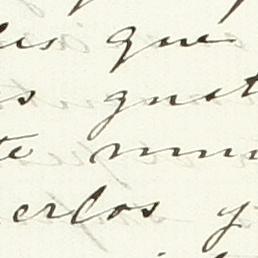 les que
s gust
te muu
erlos y